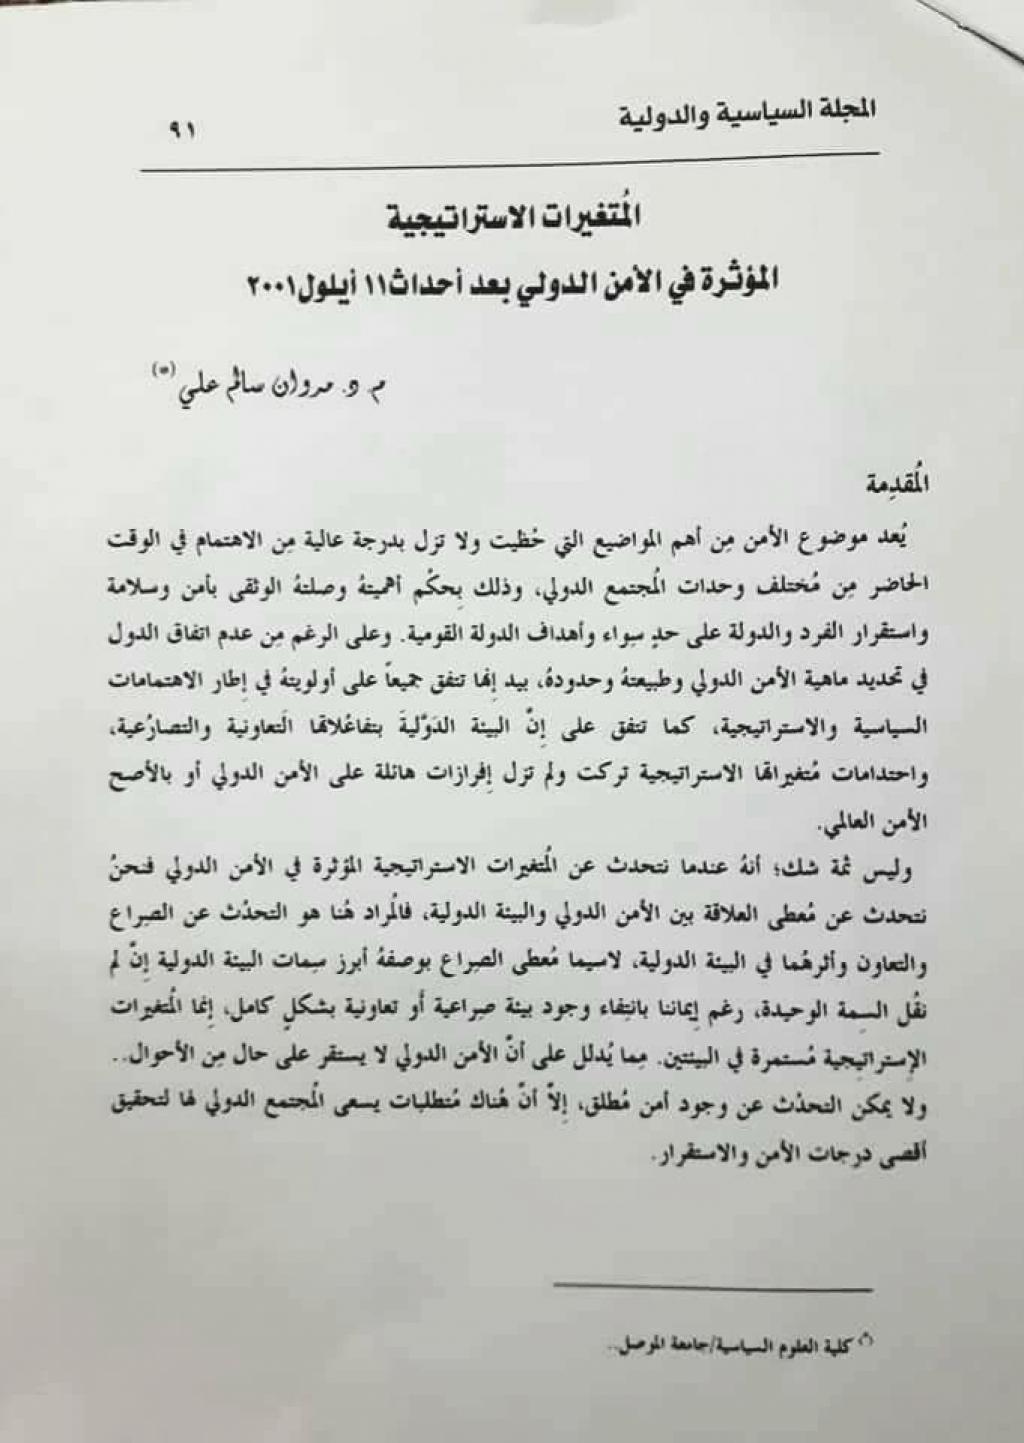 المجلة السياسية والدولية
٩١
المُتغيرات الاستراتيجية
المؤثرة في الأمن الدولي بعد أحداث ١١ أيلول ٢٠٠١
م. د. مروان سالم علي (*)
المُقدِمة
يُعد موضوع الأمن مِن أهم المواضيع التي حُظيت ولا تزل بدرجة عالية مِن الاهتمام في الوقت
الحاضر مِن مُختلف وحدات المُجتمع الدولي، وذلك بِحكُم أهميتهُ وصلتهُ الوثقى بأمن وسلامة
واستقرار الفرد والدولة على حدٍ سِواء وأهداف الدولة القومية. وعلى الرغم مِن عدم اتفاق الدول
في تحديد ماهية الأمن الدولي وطبيعتهُ وحدودهُ، بيد إنها تتفق جميعاً على أولويتهُ في إطار الاهتمامات
السياسية والاستراتيجية، كما تتفق على إنّ البيئة الدَوّليةَ بتفاعُلاتها التَعاونية والتصارُعية،
واحتدامات مُتغيراتها الاستراتيجية تركت ولم تزل إفرازات هائلة على الأمن الدولي أو بالأصح
الأمن العالمي.
وليس ثمة شك؛ أنهُ عندما نتحدث عن المُتغيرات الاستراتيجية المؤثرة في الأمن الدولي فنحنُ
نتحدث عن مُعطى العلاقة بين الأمن الدولي والبيئة الدولية، فالمُراد هُنا هو التحدُث عن الصِراع
والتعاون وأثرهُما في البيئة الدولية، لاسيما مُعطى الصِراع بوصفهُ أبرز سِمات البيئة الدولية إنّ لم
نقُل السِمة الوحيدة، رغم إيماننا بانتفاء وجود بيئة صِراعية أو تعاونية بشكلٍ كامل، إنما المُتغيرات
الإستراتيجية مُستمرة في البيئتين. مِما يُدلل على أنّ الأمن الدولي لا يستقر على حال مِن الأحوال..
ولا يمكن التحدُث عن وجود أمن مُطلق، إلاّ أنّ هُناك مُتطلبات يسعى المُجتمع الدولي لها لتحقيق
أقصى درجات الأمن والاستقرار.
(*) كلية العلوم السياسية/جامعة الموصل..